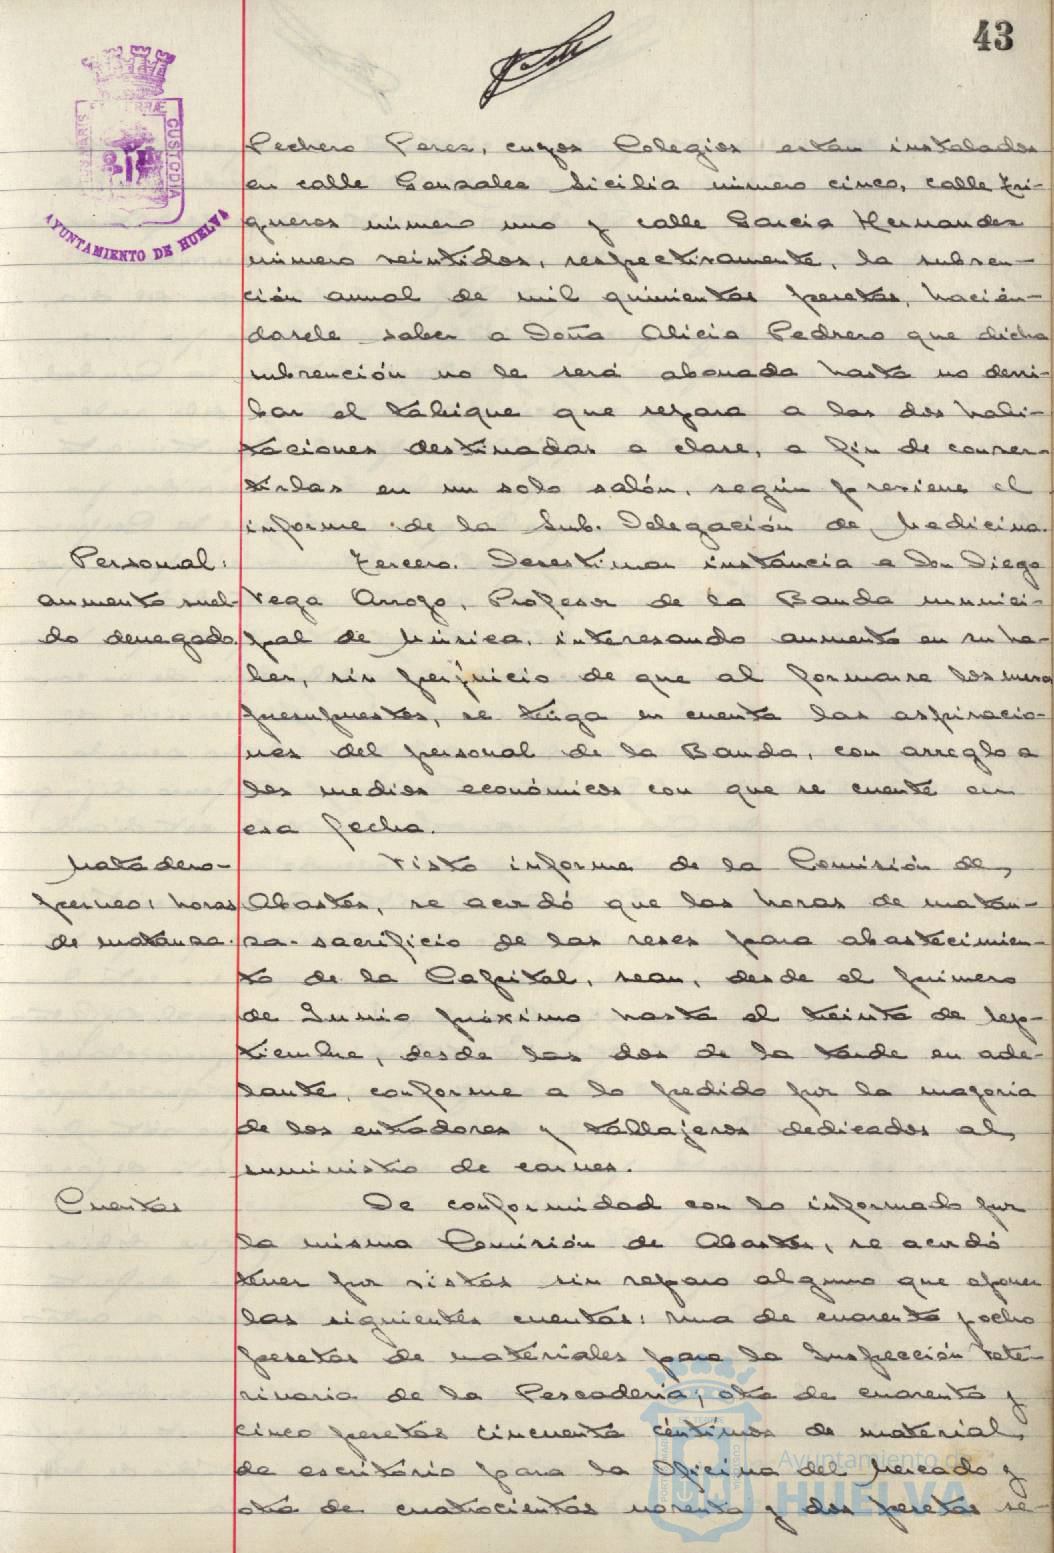 43
PORTUS MARIS ET TERRÆ CUSTODIA
AYUNTAMIENTO DE HUELVA
Pedrero Perez, cuyos Colegios estan instalados
en calle Gonzalez Sicilia número cinco, calle Tri-
gueros número uno y calle Garcia Hernandez
número veintidos, respectivamente, la subven-
ción anual de mil quinientas pesetas, hacién-
dosele saber a Doña Alicia Pedrero que dicha
subvención no le será abonada hasta no derri-
bar el tabique que separa a las dos habi-
taciones destinadas a clase, a fin de conver-
tirlas en un solo salón, según previene el
informe de la Sub. Delegación de Medicina.
Personal:
aumento suel-
do denegado.
Tercero. Desestimar instancia a Don Diego
Vega Arroyo, Profesor de la Banda munici-
pal de Música, interesando aumento en su ha-
ber, sin perjuicio de que al formarse los nuevos
presupuestos, se tenga en cuenta las aspiracio-
nes del personal de la Banda, con arreglo a
los medios económicos con que se cuente en
esa fecha.
Matadero-
horas
de matanza.
Visto informe de la Comisión de
Abastos, se acordó que las horas de matan-
za-sacrificio de las reses para abastecimien-
to de la Capital, sean, desde el primero
de Junio próximo hasta el treinta de Sep-
tiembre, desde las dos de la tarde en ade-
lante, conforme a lo pedido por la mayoria
de los entradores y tallajeros dedicados al
suministro de carnes.
Cuentas
De conformidad con lo informado por
la misma Comisión de Abastos, se acordó
tener por vistas sin reparo alguno que oponer
las siguientes cuentas: una de cuarenta y ocho
pesetas de materiales para la Inspección Vete-
rinaria de la Pescaderia; otra de cuarenta y
cinco pesetas cincuenta céntimos de material
de escritorio para la Oficina del Mercado y
otra de cuatrocientas noventa y dos pesetas se-
Ayuntamiento de
HUELVA